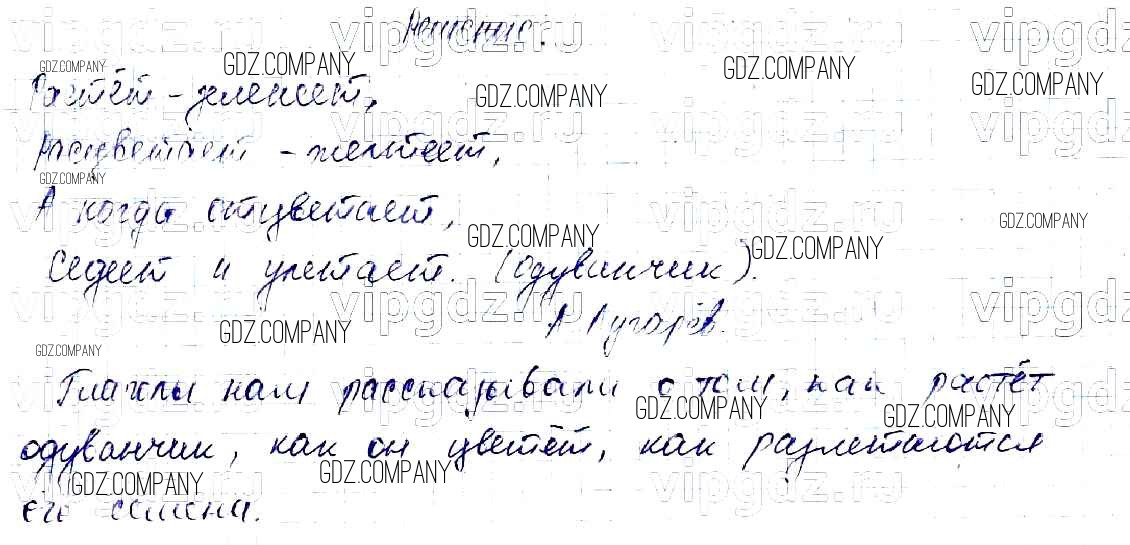 Решение.
Растёт - зеленеет,
Расцветает - желтеет,
А когда отцветает,
Седеет и улетает. (Одуванчик).
А. Лугарёв.
Глаголы нам рассказывали о том, как растёт
одуванчик, как он цветёт, как разлетаются
его семена.
GDZ.COMPANY
vipgdz.ru